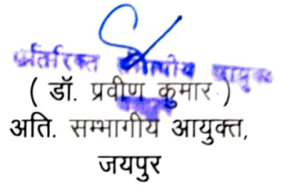 अतिरिक्त संभागीय आयुक्त
( डॉ. प्रवीण कुमार )
अति. सम्भागीय आयुक्त,
जयपुर